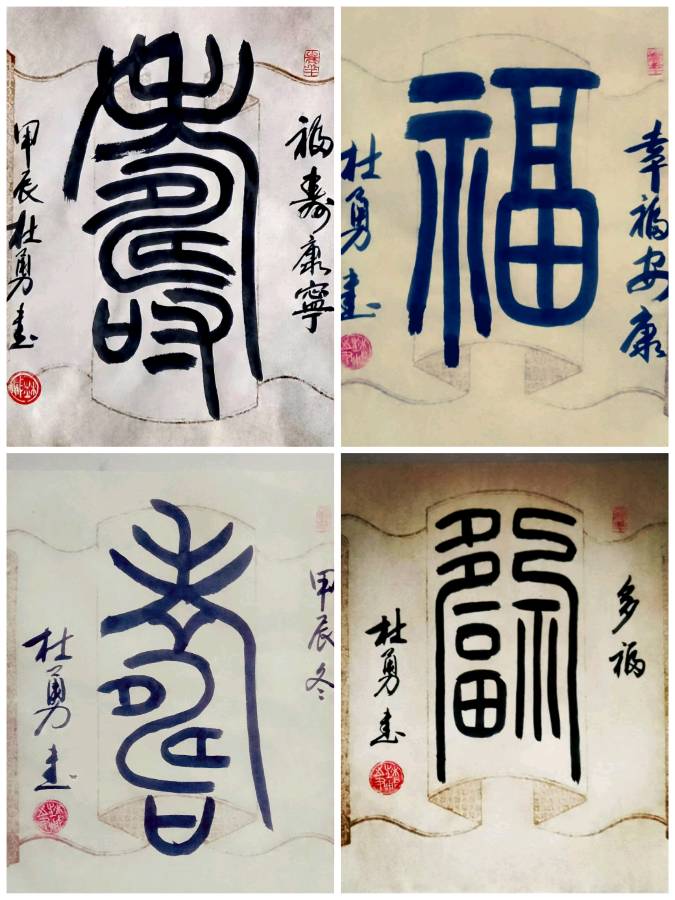 福壽康寧
壽
甲辰杜勇書
幸福安康
福
杜勇書
甲辰冬
壽
杜勇書
多福
多福
杜勇書